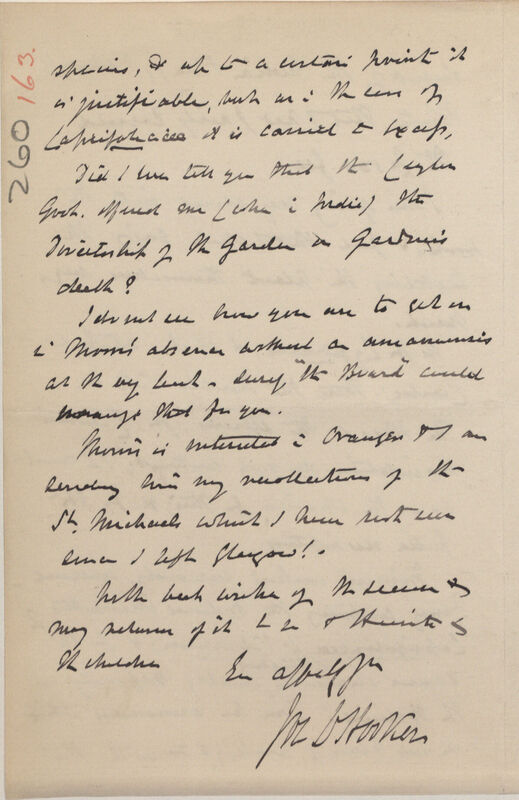 163.
260
species, & up to a certain point it
is justifiable, but as i the case of
Caprifoliaceae it is carried to excess,
Did I ever tell you that the Ceylon
Govt. offered me (when i India) the
Directorship of the Garden on Gardner's
death?
I do not see how you are to get on
i Morris's absence without an amanuensis
at the very least - surely "the Board" could
arrange that for you.
Morris is interested i Oranges & I am
sending him my recollections of the
St. Michaels which I have not seen
since I left Glasgow! -
With best wishes of the season &
many returns of it to &
the children
Ev affely yrs
Jos D Hooker